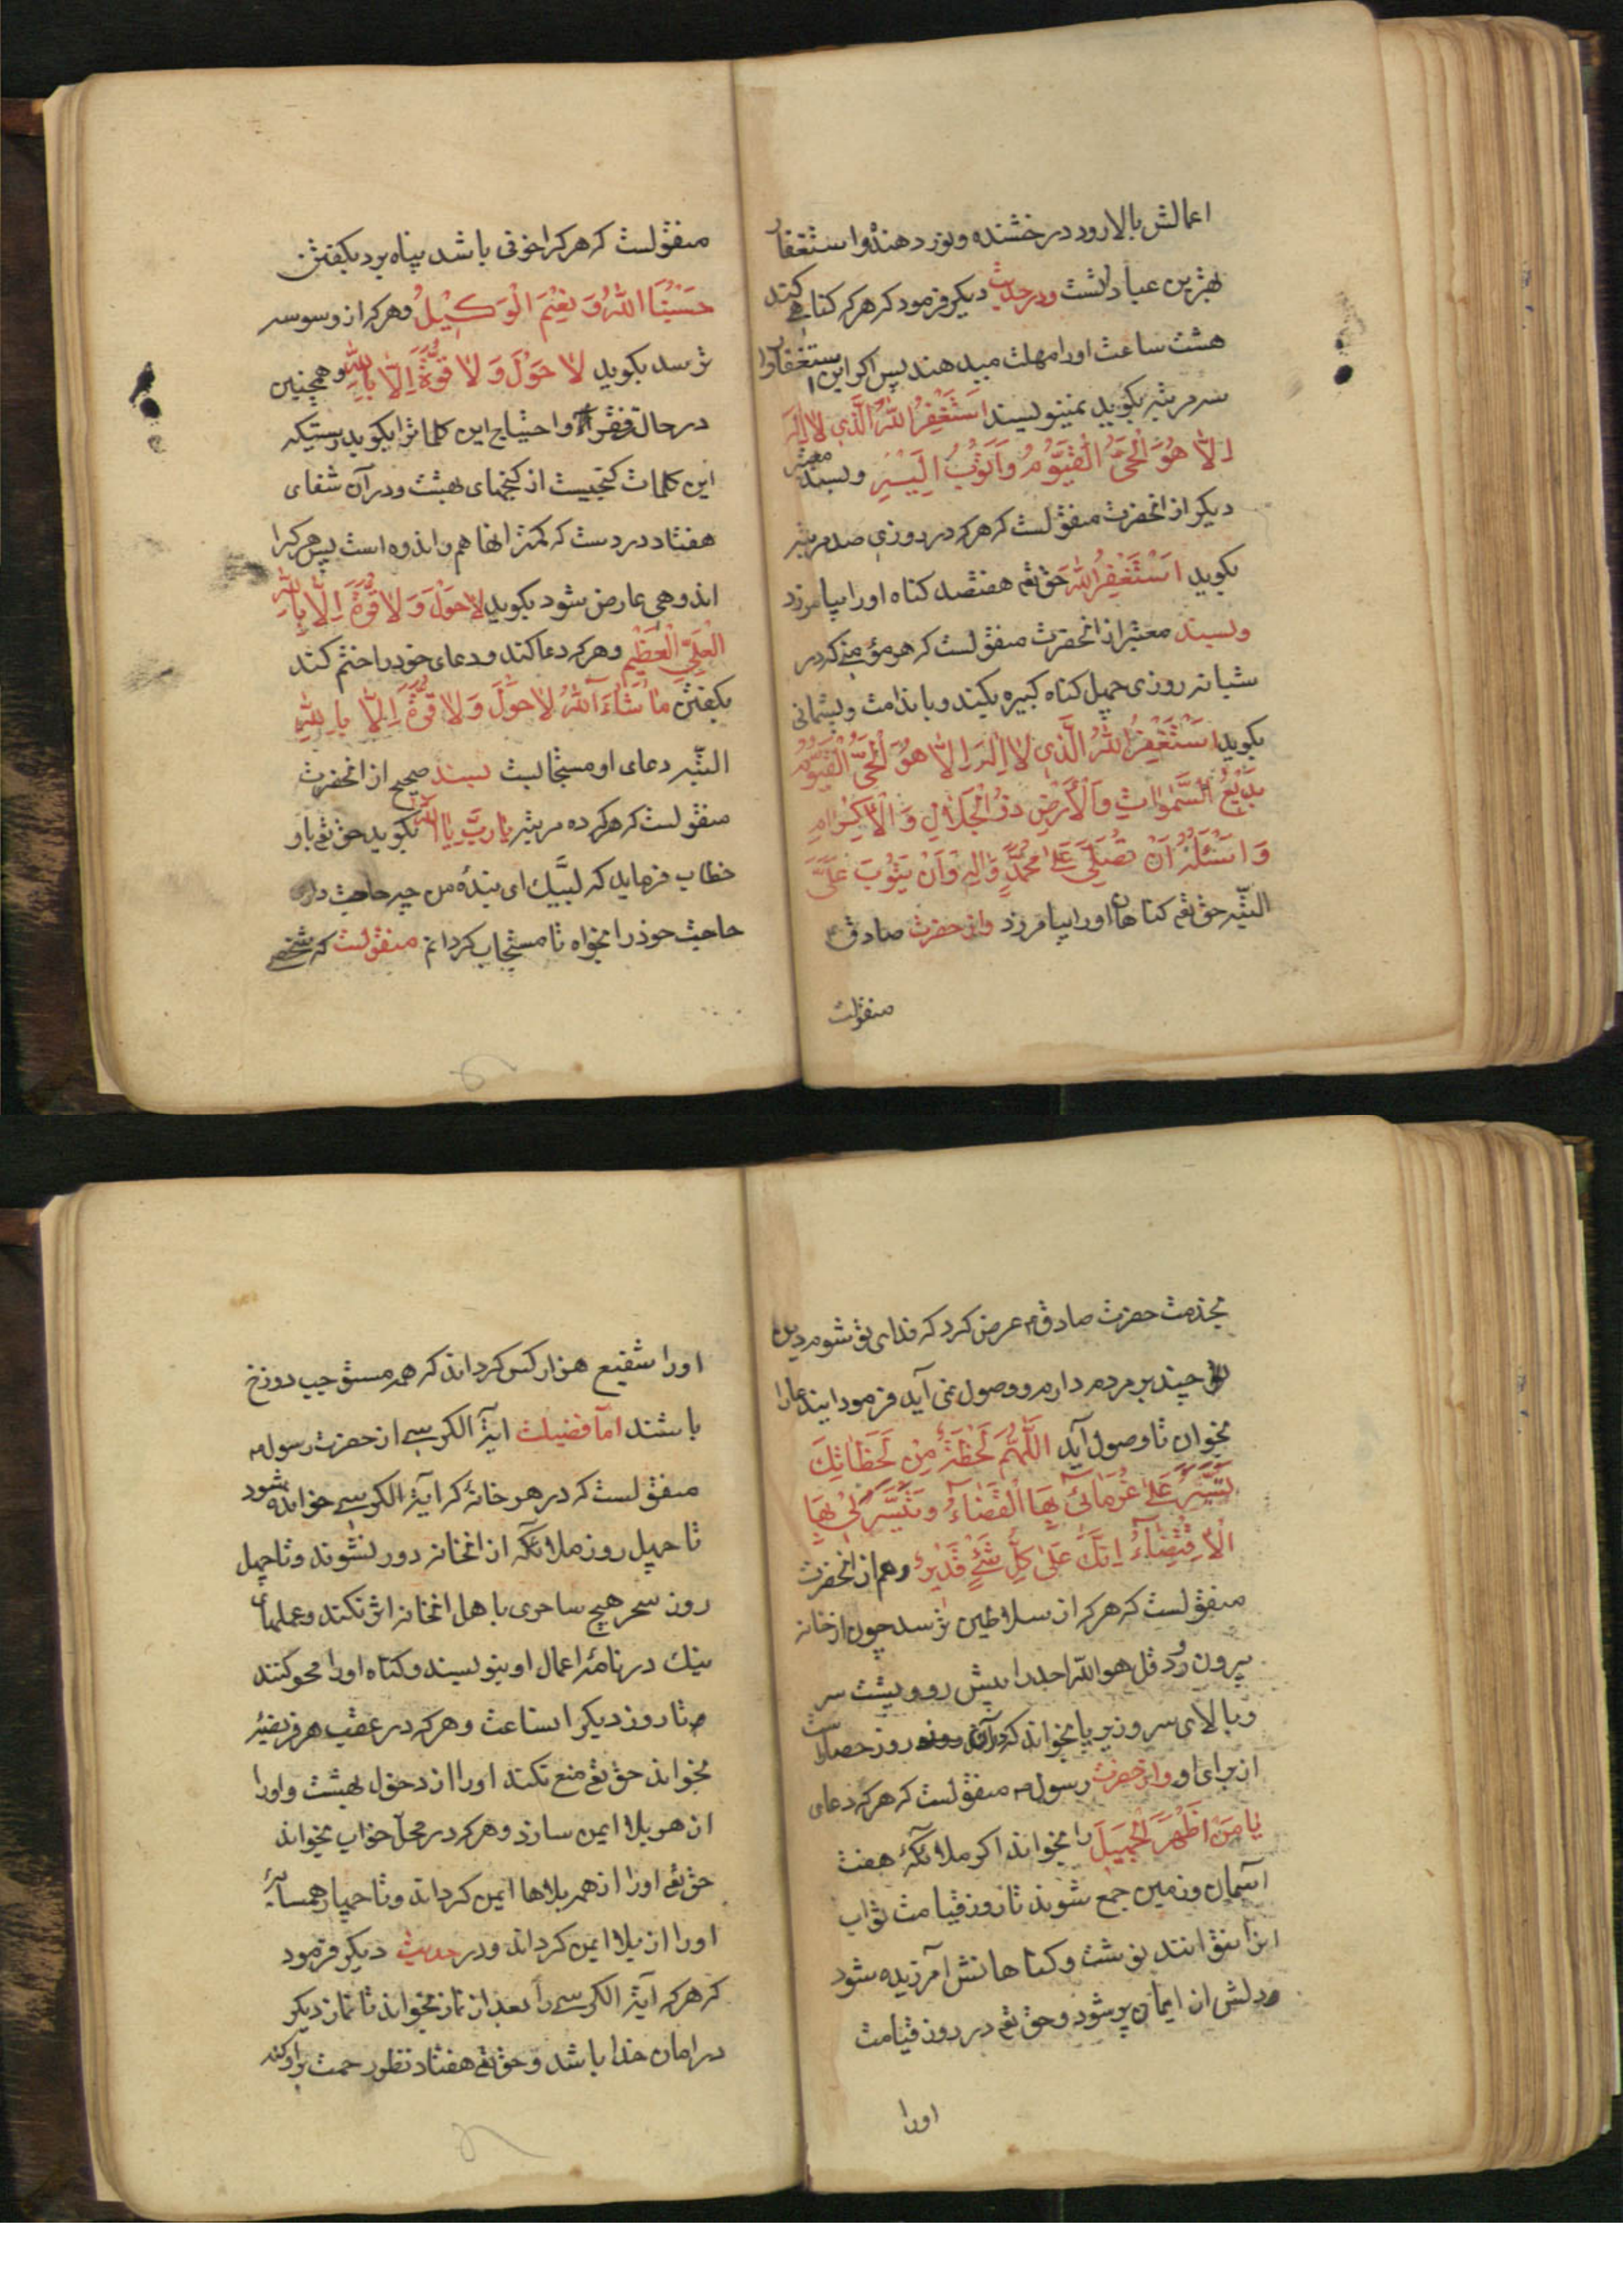 اعمالش بالا رود درخشنده و نور دهنده و استغفار
بهترین عبادلتست و در حدیث دیکر فرمود که هر که کناهی کند
هشت ساعت او را مهلت میدهند پس اکر این استغفار را
سه مرتبه بکوید نمینویسند اَسْتَغْفِرُ اللّهَ الَّذی لا اِلهَ
اِلّا هُوَ الْحَیُّ الْقَیُّومُ وَ اَتُوبُ اِلَیْهِ و بسند معتبر
دیکر از انحضرت منقولست که هر که در روزی صد مرتبه
بکوید اَسْتَغْفِرُ اللّهَ حق تع هفتصد کناه او را بیامرزد
و بسند معتبر از انحضرت منقولست که هر مؤمنی که در
شبانه روزی چهل کناه کبیره بکند و با ندامت و پشمانی
بکوید اَسْتَغْفِرُ اللّهَ الَّذی لا اِلهَ اِلّا هُوَ الْحَیُّ الْقَیُّومُ
بَدیعُ السَّمواتِ وَ الْاَرْضِ ذُو الْجَلالِ وَ الْاِکْرامِ
وَ اَسْئَلُهُ اَنْ تُصَلِّیَ عَلی مُحَمَّدٍ وَ الِهِ وَ اَنْ یَتُوبَ عَلَیَّ
البتّه حق تع کناهان او را بیامرزد و از حضرت صادق ع
منقولست
منقولست که هر که را خوفی باشد پناه برد بکفتن
حَسْبُنَا اللّهُ وَ نِعْمَ الْوَکیلُ و هر که از وسوسه
ترسد بکوید لا حَوْلَ وَ لا قُوَّةَ اِلّا بِاللّهِ و همچنین
در حال فقر و احتیاج این کلمات را بکوید بدرستیکه
این کلمات کنجیست از کنجهای بهشت و در آن شفای
هفتاد دردست که کمتر انها هم و اندوه است پس هر که را
اندوهی عارض شود بکوید لا حَوْلَ وَ لا قُوَّةَ اِلّا بِاللّهِ
الْعَلِیِّ الْعَظیمِ و هر که دعا کند و دعای خود را ختم کند
بکفتن ما شاءَ اللّهُ لا حَوْلَ وَ لا قُوَّةَ اِلّا بِاللّهِ
البتّه دعای او مستجابست بسند صحیح از انحضرت
منقولست که هر که ده مرتبه یا رَبِّ یا اَللّهُ بکوید حق تع باو
خطاب فرماید که لبّیك ای بندهٔ من چه حاجت داری
حاجت خود را بخواه تا مستجاب کردانم منقولست که شخصی
بخدمت حضرت صادق ع عرض کرد که فدای تو شوم دین
چند بر مردم دارم و وصول نمی آید فرمود اینده عا را
بخوان تا وصول آید اَللّهُمَّ لَحْظَةً مِنْ لَحَظاتِكَ
تَیَسَّرَ عَلی غُرَمائی بِهَا الْقَضاءُ وَ تَیَسَّرَ لی بِهَا
الْاِقْتِضاءُ اِنَّكَ عَلی کُلِّ شَیْءٍ قَدیرٌ و هم از انحضرت
منقولست که هر که از سلاطین ترسد چون از خانه
بیرون رود قل هو اللّه احد را پیش رو و پشت سر
و بالای سر و زیر پا بخواند که در آن روز حصاریست
از برای او و از حضرت رسول ص منقولست که هر که دعای
یا مَنْ اَظْهَرَ الْجَمیلَ را بخواند اکر ملائکهٔ هفت
آسمان و زمین جمع شوند تا روز قیامت ثواب
انرا نتوانند نوشت و کناهانش آمرزیده شود
و دلش از ایمان پر شود و حق تع در روز قیامت
او را
او را شفیع هزار کس کرداند که همه مستوجب دوزخ
باشند امّا فضیلت ایة الکرسی از حضرت رسول ص
منقولست که در هر خانهٔ که آیة الکرسی خوانده شود
تا چهل روز ملائکه از انخانه دور نشوند و تا چهل
روز سحر هیچ ساحری باهل انخانه اثر نکند و عملهای
نیك در نامهٔ اعمال او بنویسند و کناه او را محو کنند
تا روز دیکر انساعت و هر که در عقب هر فریضهٔ
بخواند حق تع منع نکند او را از دخول بهشت و او را
از هر بلا ایمن سازد و هر که در محلّ خواب بخواند
حق تع او را از همه بلاها ایمن کرداند و تا چهار همسایهٔ
او را از بلا ایمن کرداند و در حدیث دیکر فرمود
که هر که آیة الکرسی را بعد از نماز بخواند تا نماز دیکر
در امان خدا باشد و حق تع هفتاد نظر رحمت بر او کند